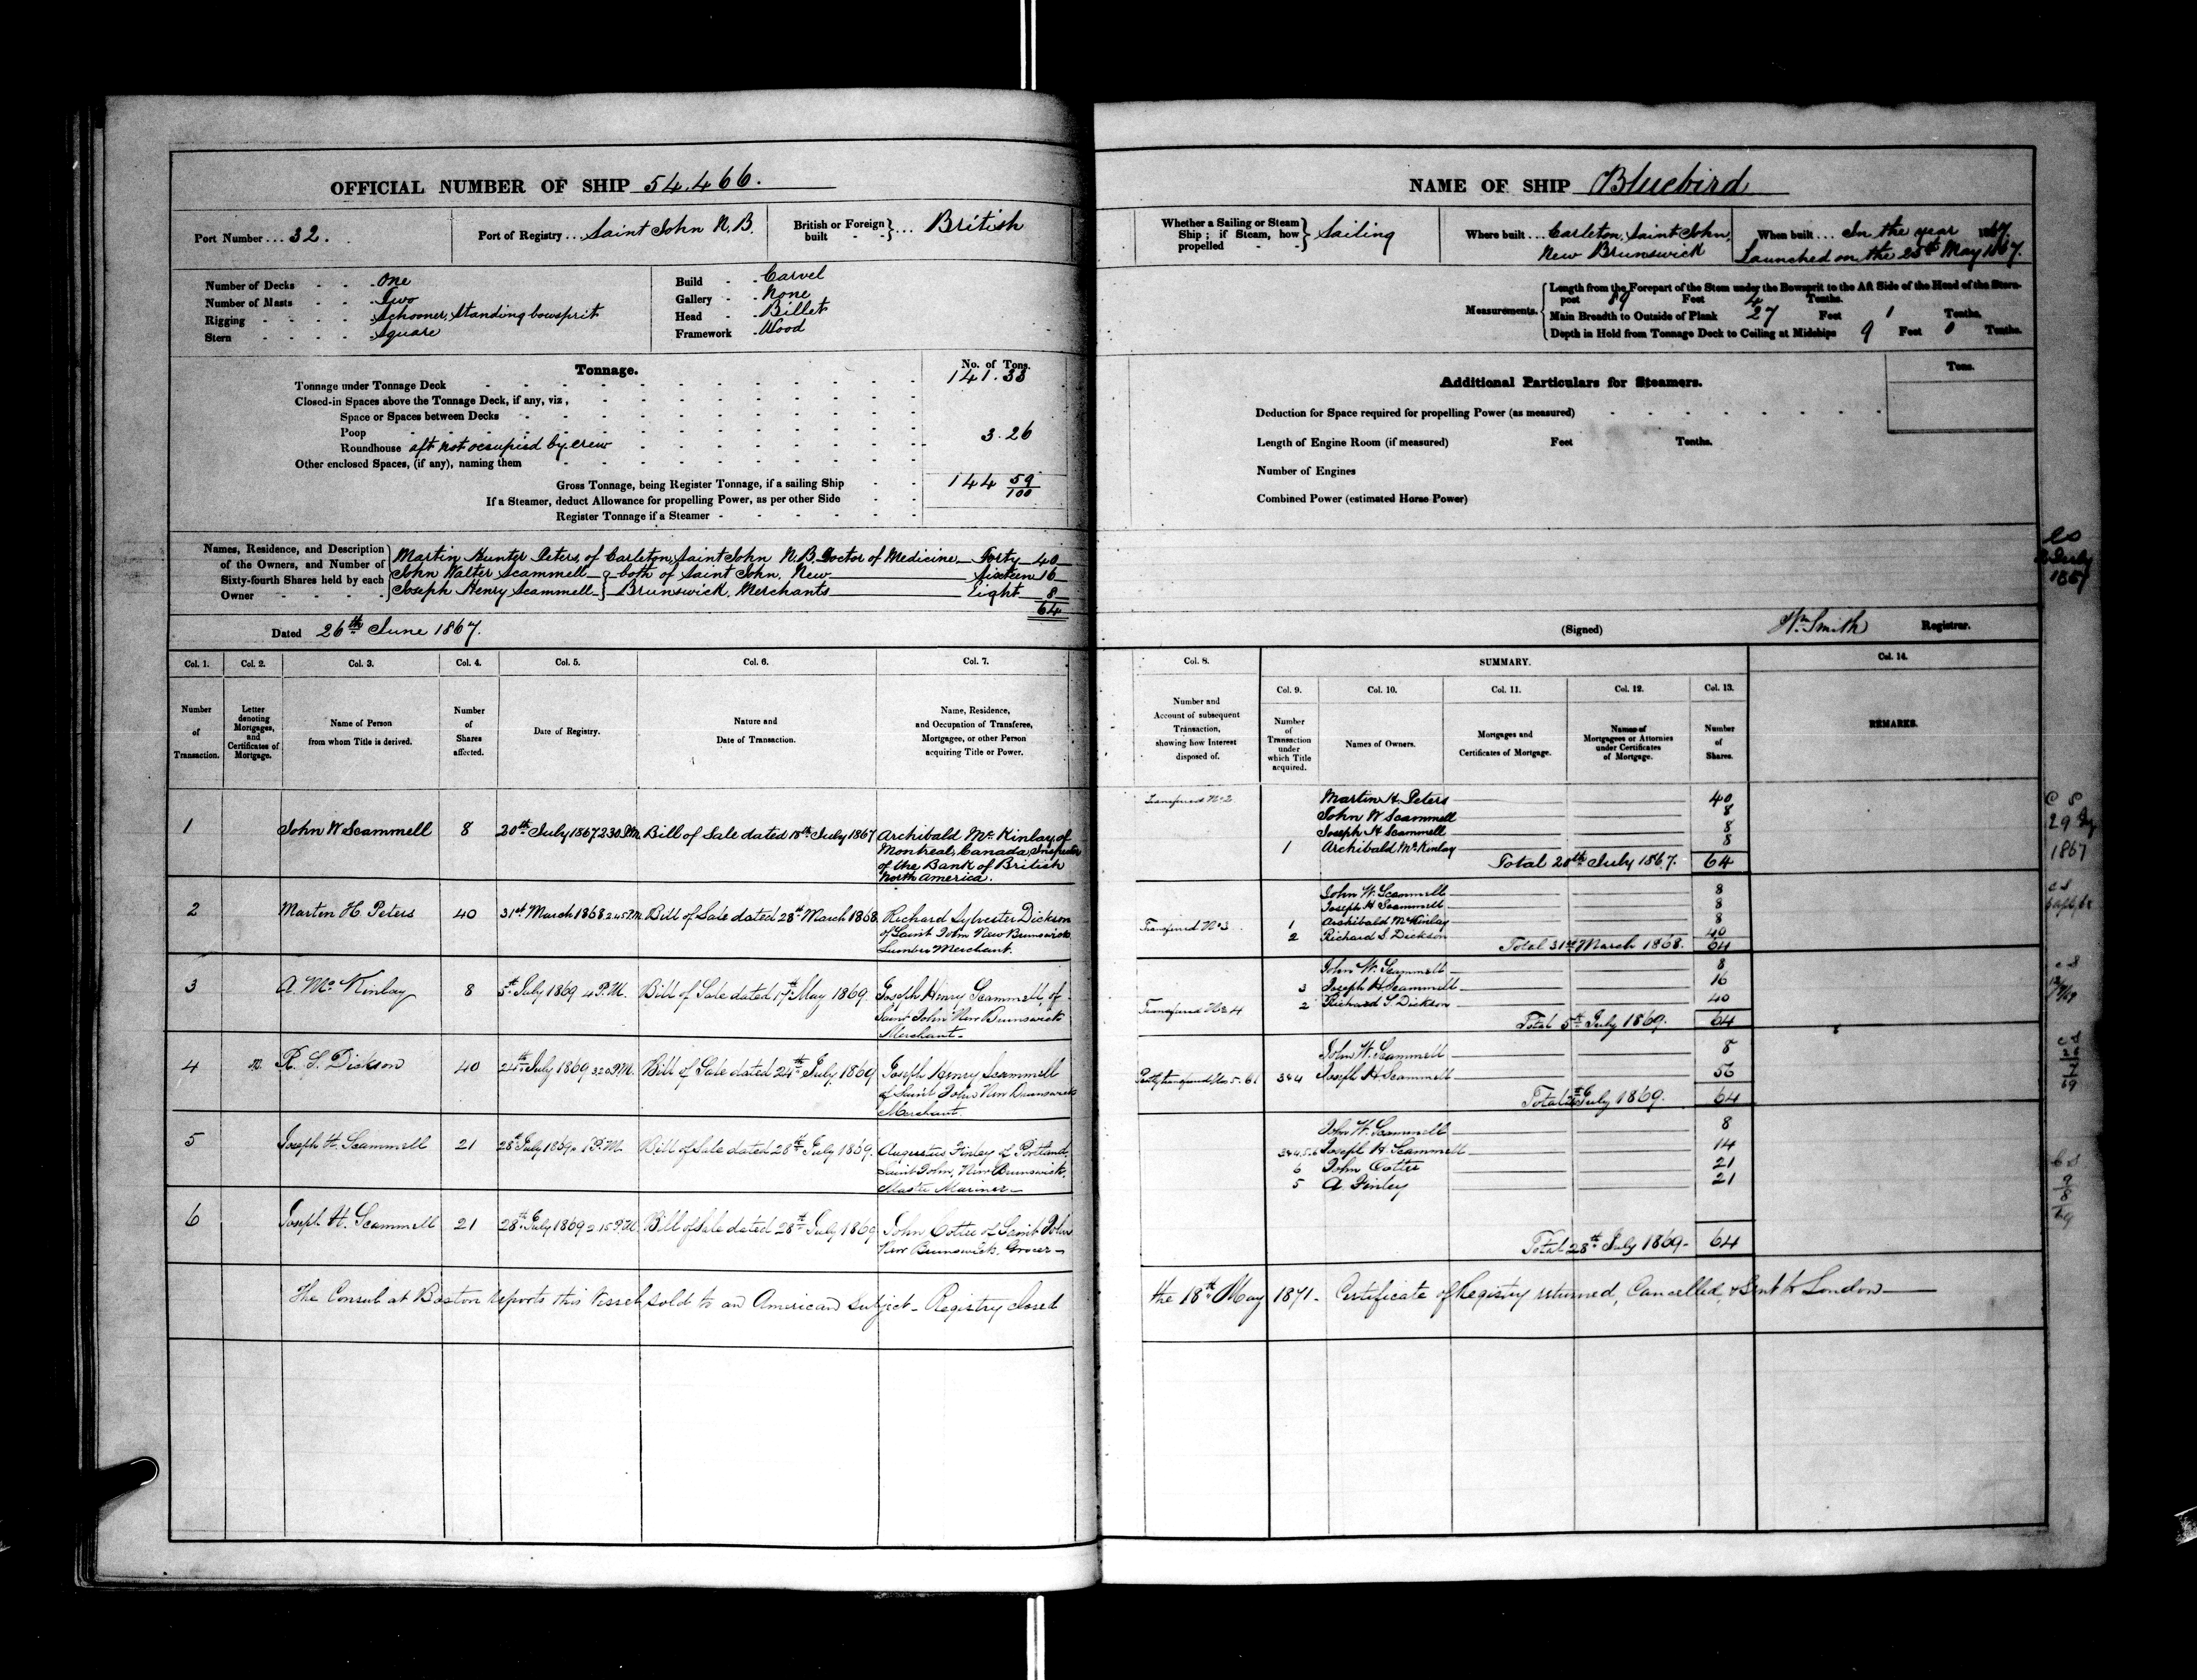 OFFICIAL NUMBER OF SHIP 54,466.
Port Number ... 32.
Port of Registry ... Saint John N.B.
British or Foreign built - - } ... British
Number of Decks - - One
Number of Masts - - Two
Rigging - - - - Schooner, Standing bowsprit
Stern - - - - Square
Build - - Carvel
Gallery - - None
Head - - Billet
Framework - Wood
Tonnage.
No. of Tons.
Tonnage under Tonnage Deck 141.33
Closed-in Spaces above the Tonnage Deck, if any, viz,
Space or Spaces between Decks
Poop
Roundhouse aft not occupied by crew 3.26
Other enclosed Spaces, (if any), naming them
Gross Tonnage, being Register Tonnage, if a sailing Ship 144 59/100
If a Steamer, deduct Allowance for propelling Power, as per other Side
Register Tonnage if a Steamer
Names, Residence, and Description of the Owners, and Number of Sixty-fourth Shares held by each Owner
Martin Hunter Peters, of Carleton, Saint John N.B. Doctor of Medicine Forty 40
John Walter Scammell } both of Saint John, New Sixteen 16
Joseph Henry Scammell } Brunswick, Merchants Eight 8
64
Dated 26th June 1867.
Col. 1. Col. 2. Col. 3. Col. 4. Col. 5. Col. 6. Col. 7.
Number of Transaction.
Letter denoting Mortgages, and Certificates of Mortgage.
Name of Person from whom Title is derived.
Number of Shares affected.
Date of Registry.
Nature and Date of Transaction.
Name, Residence, and Occupation of Transferee, Mortgagee, or other Person acquiring Title or Power.
1 John W Scammell 8 20th July 1867 2 30 P.M. Bill of Sale dated 18th July 1867 Archibald McKinlay, of
Montreal, Canada, Inspector
of the Bank of British
North America.
2 Martin H. Peters 40 31st March 1868 2 45 P.M. Bill of Sale dated 28th March 1868. Richard Sylvester Dickson
of Saint John New Brunswick
Lumber Merchant.
3 A. McKinlay 8 5th July 1869 4 P.M. Bill of Sale dated 17th May 1869 Joseph Henry Scammell, of
Saint John New Brunswick
Merchant
4 R. S. Dickson 40 24th July 1869 3 20 P.M. Bill of Sale dated 24th July 1869 Joseph Henry Scammell
of Saint John New Brunswick
Merchant.
5 Joseph H. Scammell 21 28th July 1869 1 P.M. Bill of Sale dated 28th July 1869. Augustus Finley of Portland,
Saint John, New Brunswick,
Master Mariner
6 Joseph H. Scammell 21 28th July 1869 2 15 P.M. Bill of Sale dated 28th July 1869 John Cotter of Saint John
New Brunswick, Grocer
The Consul at Boston reports this Vessel sold to an American Subject - Registry closed
NAME OF SHIP Bluebird
Whether a Sailing or Steam Ship ; if Steam, how propelled - - } Sailing
Where built ... Carleton, Saint John,
New Brunswick
When built ... In the year 1867.
Launched on the 25th May 1867.
Measurements.
Length from the Forepart of the Stem under the Bowsprit to the Aft Side of the Head of the Stern-
post 89 Feet 4 Tenths.
Main Breadth to Outside of Plank 27 Feet 1 Tenths.
Depth in Hold from Tonnage Deck to Ceiling at Midships 9 Feet 0 Tenths.
Additional Particulars for Steamers.
Tons.
Deduction for Space required for propelling Power (as measured)
Length of Engine Room (if measured) Feet Tenths.
Number of Engines
Combined Power (estimated Horse Power)
(Signed) Wm Smith Registrar.
Col. 8. SUMMARY. Col. 14.
Col. 9. Col. 10. Col. 11. Col. 12. Col. 13.
Number and Account of subsequent Transaction, showing how Interest disposed of.
Number of Transaction under which Title acquired.
Names of Owners.
Mortgages and Certificates of Mortgage.
Names of Mortgagees or Attornies under Certificates of Mortgage.
Number of Shares.
REMARKS.
Transferred No 2 Martin H. Peters 40
John W Scammell 8
Joseph H Scammell 8
1 Archibald McKinlay 8
Total 20th July 1867. 64
John W. Scammell 8
Joseph H Scammell 8
Transferred No 3 1 Archibald McKinlay 8
2 Richard S. Dickson 40
Total 31st March 1868. 64
John W. Scammell 8
3 Joseph H. Scammell 16
Transferred No 4 2 Richard S. Dickson 40
Total 5th July 1869. 64
John W. Scammell 8
Partly transferred Nos 5. 6 3&4 Joseph H. Scammell 56
July 1869. 64
John W. Scammell 8
Joseph H. Scammell 14
6 John Cotter 21
5 A Finley 21
Total 28th July 1869 - 64
the 18th May 1871 - Certificate of Registry returned, Cancelled, & Sent to London